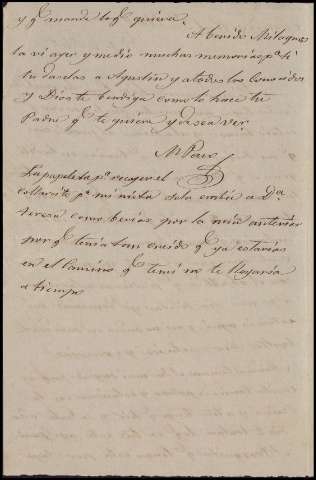 y qe mande lo qe quiera.
A benido Milagros
la vi ayer y me dio muchas memorias pa ti
tu daselas a Agustin y a todos los Conocidos
y Dios te bendiga como lo hace tu
Padre qe te quiere y desea ver.
M Pero
La papeleta pa recoger el
collarcito pa mi nieta se la embie a Da
teresa como berias por la mia anterior
por qe tenia tan creido qe ya estarias
en el Camino qe temi no te llegaria
a tiempo